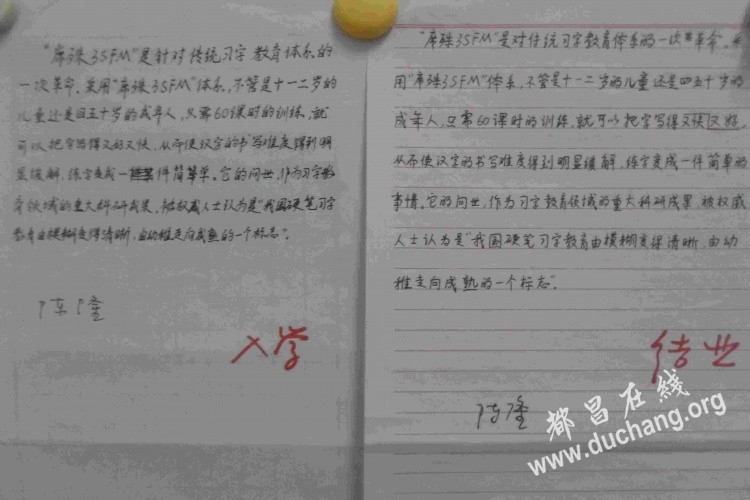 "席殊3SFM"是针对传统习字教育体系的
一次革命.采用"席殊3SFM"体系,不管是十一二岁的
儿童还是四五十岁的成年人,只需60课时的训练,就
可以把字写得又好又快,从而使汉字的书写难度得到明
显缓解,练字变成一件简单.它的问世,作为习字教
育领域的重大科研成果,被权威人士认为是"我国硬笔习字
教育由模糊变得清晰,由幼稚走向成熟的一个标志".
陈隆
入学
"席殊3SFM"是对传统习字教育体系的一次革命.采
用"席殊3SFM"体系,不管是十一二岁的儿童还是四五十的
成年人,只需60课时的训练,就可以把字写得又快又好,
从而使汉字的书写难度得到明显缓解,练字变成一件简单的
事情.它的问世,作为习字教育领域的重大科研成果,被权威
人士认为是"我国硬笔习字教育由模糊变得清晰,由幼
稚走向成熟的一个标志".
结业
陈隆
都昌在线
www.duchang.org